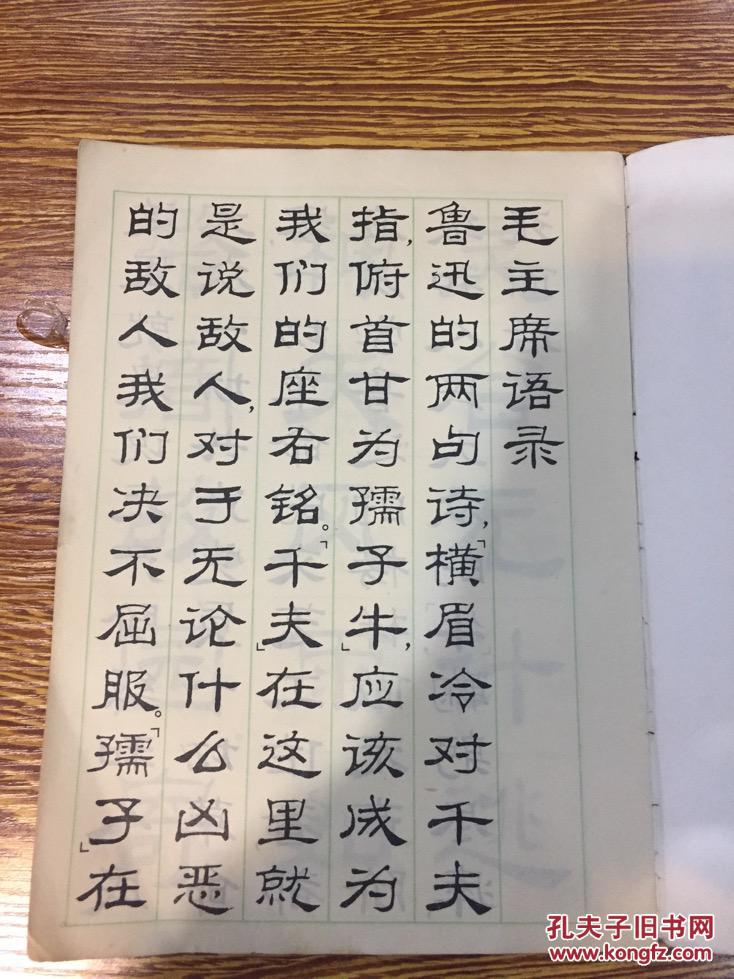 毛主席语录
鲁迅的两句诗，「横眉冷对千夫
指，俯首甘为孺子牛」，应该成为
我们的座右铭。「千夫」在这里就
是说敌人，对于无论什么凶恶
的敌人我们决不屈服。「孺子」在
孔夫子旧书网
www.kongfz.com